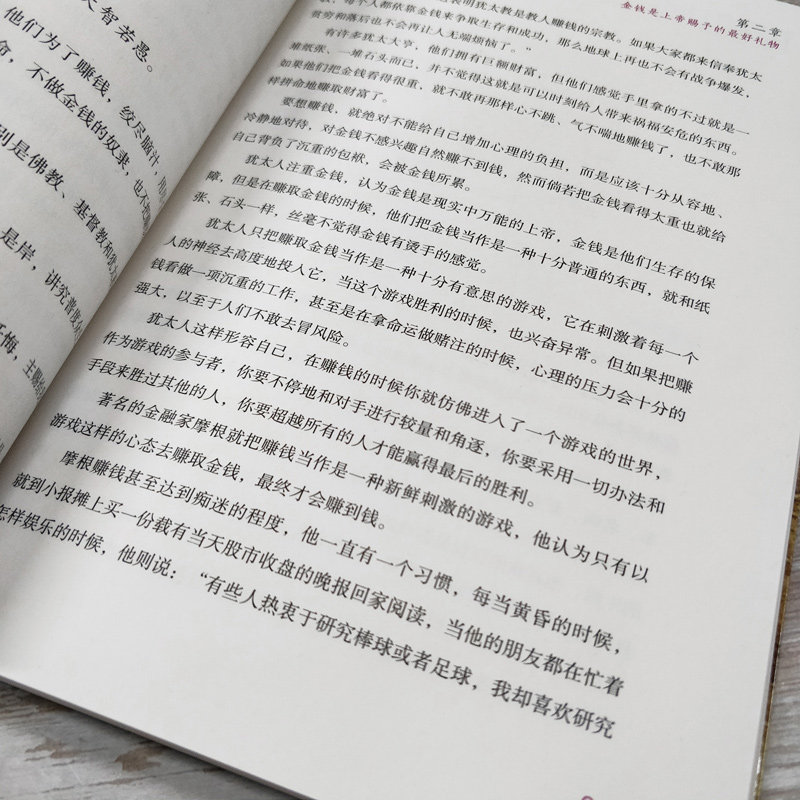 大智若愚。
他们为了赚钱，绞尽脑汁，
命，不做金钱的奴隶，也不
别是佛教、基督教和
是岸，讲究普度
忏悔，主
第二章
金钱是上帝赐予的最好礼物
表明犹太教是教人赚钱的宗教。如果大家都来信奉犹太
每个人都依靠金钱来争取生存和成功，那么地球上再也不会有战争爆发，
贫穷和落后也不会再让人无端烦恼了。”
有许多犹太大亨，他们拥有巨额财富，但他们感觉手里拿的不过就是一
堆纸张、一堆石头而已，并不觉得这就是可以时刻给人带来祸福安危的东西。
如果他们把金钱看得很重，就不敢再那样心不跳、气不喘地赚钱了，也不敢那
样拼命地赚取财富了。
要想赚钱，就绝对不能给自己增加心理的负担，而是应该十分从容地、
冷静地对待，对金钱不感兴趣自然赚不到钱，然而倘若把金钱看得太重也就给
自己背负了沉重的包袱，会被金钱所累。
犹太人注重金钱，认为金钱是现实中万能的上帝，金钱是他们生存的保
障，但是在赚取金钱的时候，他们把金钱当作是一种十分普通的东西，就和纸
张、石头一样，丝毫不觉得金钱有烫手的感觉。
犹太人只把赚取金钱当作是一种十分有意思的游戏，它在刺激着每一个
人的神经去高度地投入它，当这个游戏胜利的时候，也兴奋异常。但如果把赚
钱看做一项沉重的工作，甚至是在拿命运做赌注的时候，心理的压力会十分的
强大，以至于人们不敢去冒风险。
犹太人这样形容自己，在赚钱的时候你就仿佛进入了一个游戏的世界，
作为游戏的参与者，你要不停地和对手进行较量和角逐，你要采用一切办法和
手段来胜过其他的人，你要超越所有的人才能赢得最后的胜利。
著名的金融家摩根就把赚钱当作是一种新鲜刺激的游戏，他认为只有以
游戏这样的心态去赚取金钱，最终才会赚到钱。
摩根赚钱甚至达到痴迷的程度，他一直有一个习惯，每当黄昏的时候，
就到小报摊上买一份载有当天股市收盘的晚报回家阅读，当他的朋友都在忙着
怎样娱乐的时候，他则说：“有些人热衷于研究棒球或者足球，我却喜欢研究